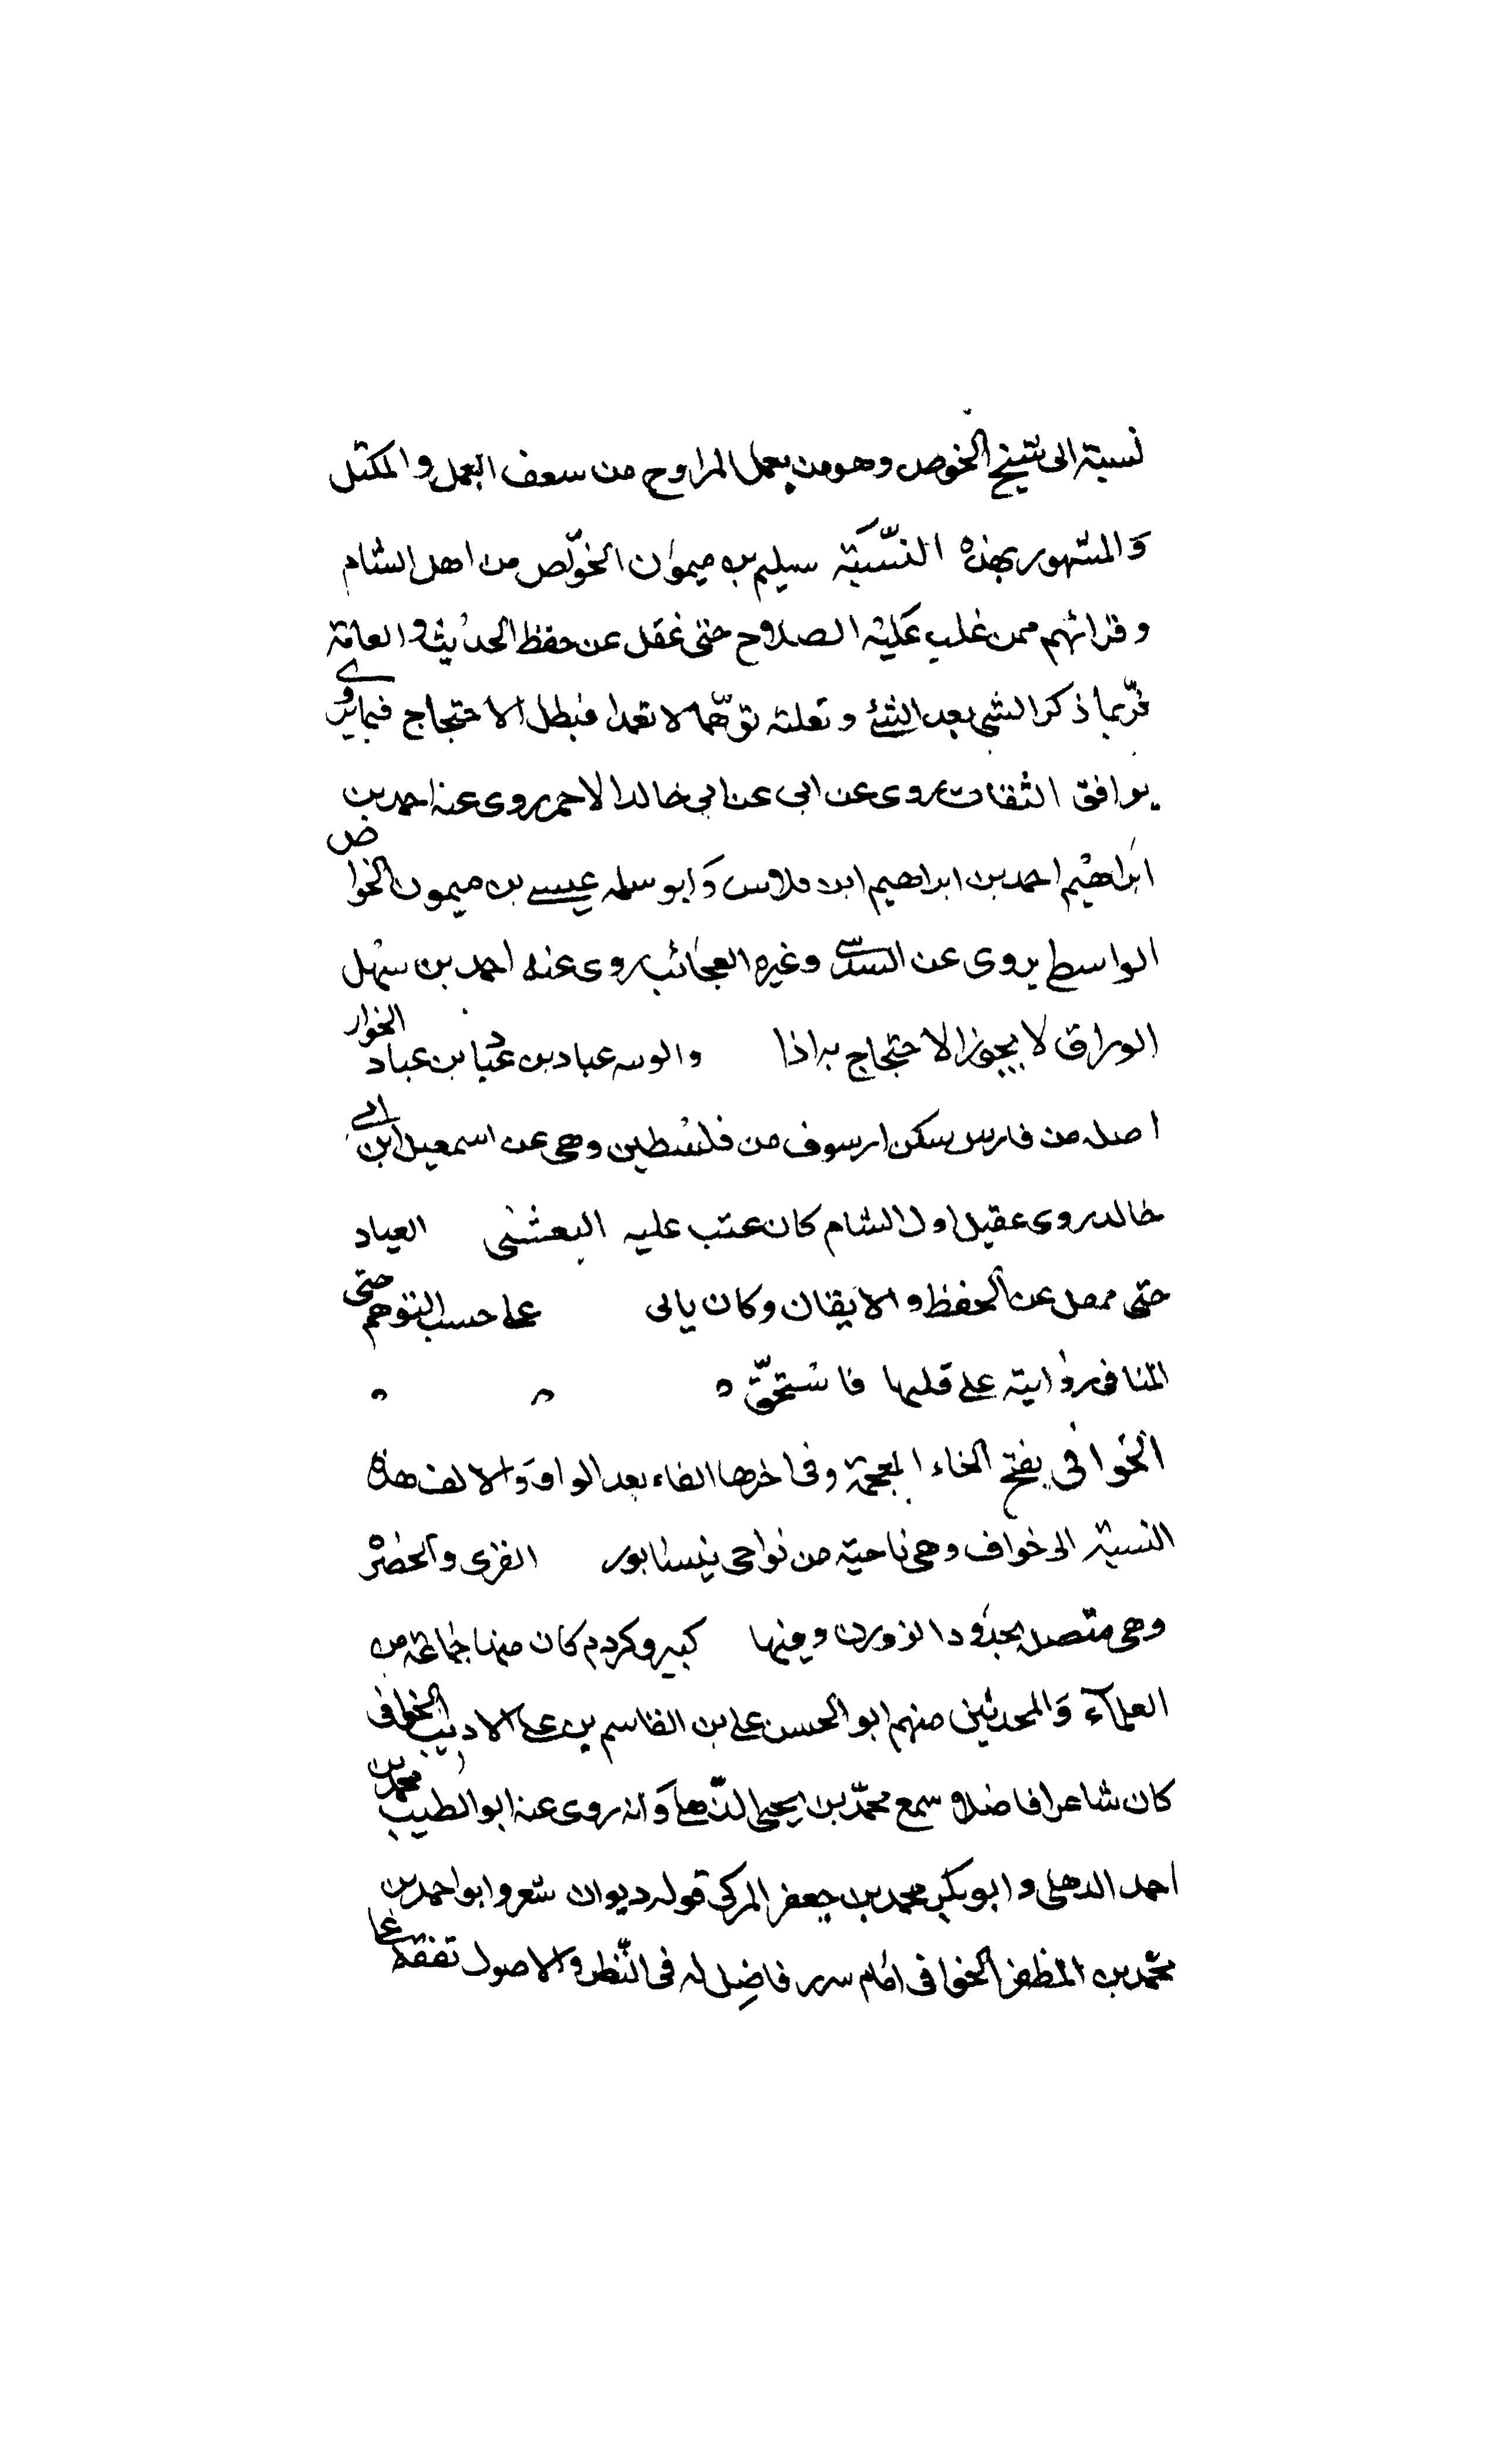 نسبة الى نتيخ الخوص وهو من يعمل المراوح من سعف العمل والمكتل
والمشهور بهذه النسبة سليم بن ميمون الخوّاص من اهل الشام
وقرائهم ممن غلب عليه الصلاح حتى غفل عن حفظ الحديث والعامة
فربما ذكر الشى بعد الشئ وتعلته توهما لا تعمدا فبطل الاحتجاج فيما يروى
يوافق الثقات روى عن ابى عن ابى خالد الاحمر روى عنه احمد بن
ابراهيم احمد بن ابراهيم ابن ملاس وابو سلمه عيسى بن ميمون الخواص
الواسطى يروى عن السدى وغيره العجائب روى عنه احمد بن سهل
الوراق لا يجوز الاحتجاج به اذا والوسه عباد بن عباد بن عباد الخوار
اصله من فارس سكن ارسوف من فلسطين وهى عن اسمعيل ابن ابى
خالد روى عقيل اول الشام كان عتب عليه البعشى العباد
حتى ممصل عن الحفظ والايقان وكان يالى على حسب التوهم حتى
المنا فى رواية على قلبها فاستحق
الخوافى بفتح الخاء المعجمة وفى اخرها الفاء بعد الواو والالف هذه
النسبة الى خواف وهى ناحية من نواحى نيسابور القرى والخضر
وهى متصلة بحدود الزورن وفيها كبير وكردم كان منها جماعة من
العلماء والمحدثين منهم ابو الحسن على بن القاسم بن على الاديب الخوافى
كان شاعرا فاضلا سمع محمد بن يحيى الذهلى وانه روى عنه ابو الطيب محمد بن
احمد الدهلى وابو بكر محمد بن جعفر المركى قوله ديوان شعر وابو احمد بن
محمد بن المظفر الخوافى امام سرر فاضل له فى النظر والاصول تفقه على